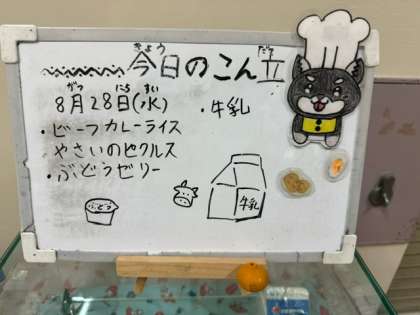 今日のこん立
きょう だて
8月28日(水)
がつ にち すい
・牛乳
・ビーフカレーライス
やさいのピクルス
・ぶどうゼリー
ぶどう
牛乳